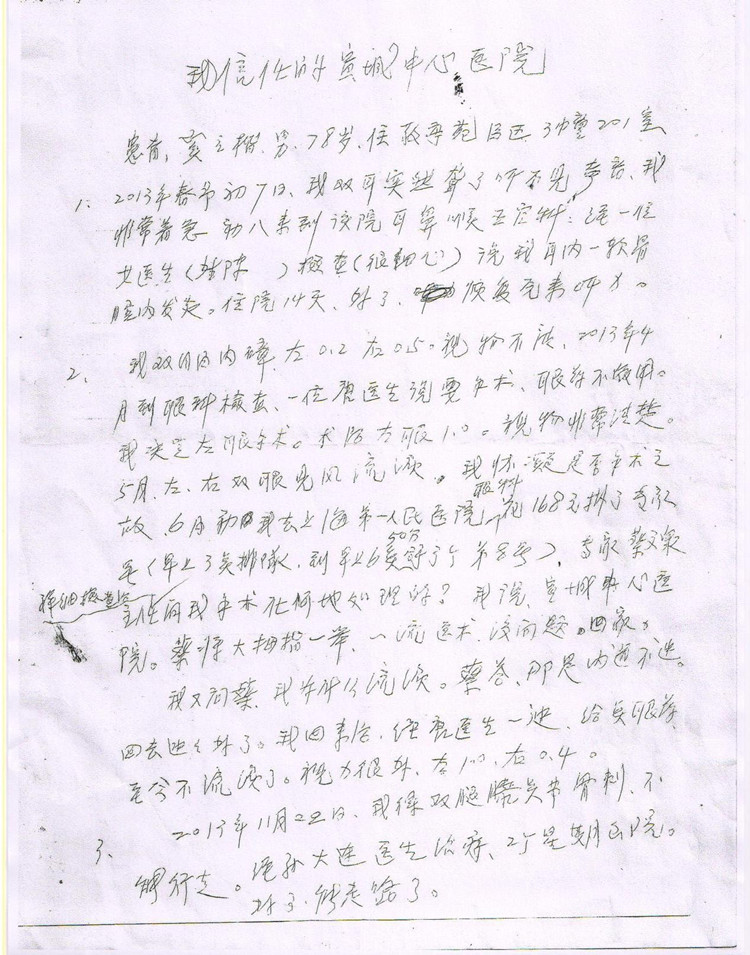 我信任的宣城中心医院
患者, 男、78岁、住敬亭苑 3幢201室
1、2013年春节初7日、我双耳突然聋了听不见声音、我
非常着急 初八来到该院耳鼻喉五官科: 经一位
女医生(姓陈 )检查(很细心)说我耳内一软骨
腔内发炎。住院14天、好了、 恢复完来听力。
2、我双目白内障、左0.2 右0.5。视物不清、2013年4
月到眼科检查、一位 医生说要手术、眼药不敢用。
我决定左眼手术。术后左眼1.0。视物非常清楚。
5月、左、右双眼见风流泪。我怀疑是否手术之
故、6月初我去上海第一人民医院眼科花168元挂了专家
号(早上3点排队、到早上6点50分 了个第8号)、专家蔡
详细检查后
主任问我手术在何地处理的? 我说、宣城中心医
院。蔡将大拇指一举、一流医术、没问题。回家。
我又问蔡、我为什么流泪。蔡答、那是 不通。
回去 好了。我回来后、经 医生一 、给点眼药、
至今不流泪了。视力很好、左1.0、右0.4。
3、2013年11月22日、我得双腿膝关节骨刺、不
能行走。经孙大连医生治疗、2个星期出院。
好了、能走路了。